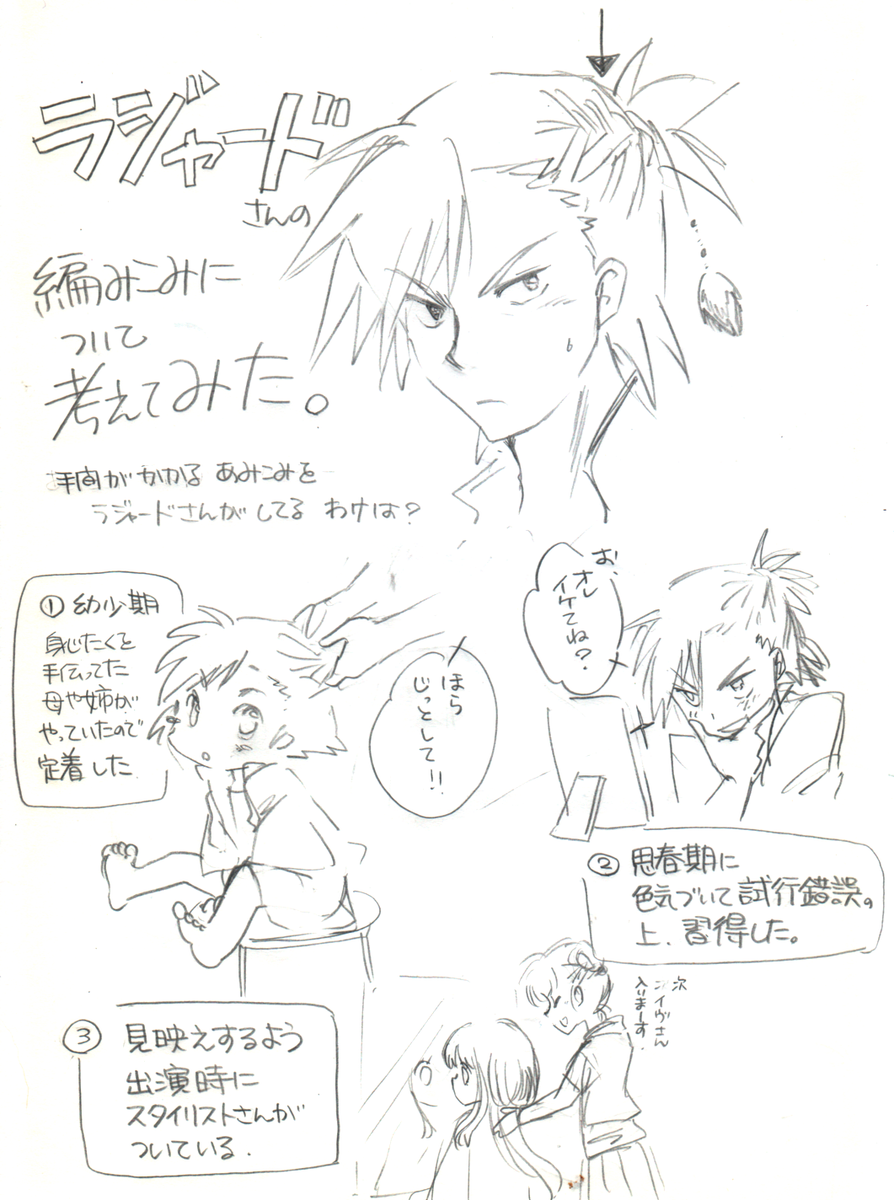 ラジャード
さんの
編みこみに
ついて
考えてみた。
手間がかかる あみこみを
ラジャードさんがしてる わけは?
① 幼少期
身じたくを
手伝ってた
母や姉が
やっていたので
定着した
ほら
じっとして!!
お、
オレ
イケてね?
② 思春期に
色気づいて試行錯誤の
上、習得した。
次
シイヴさん
入りまーす.
③ 見映えするよう
出演時に
スタイリストさんが
ついている.